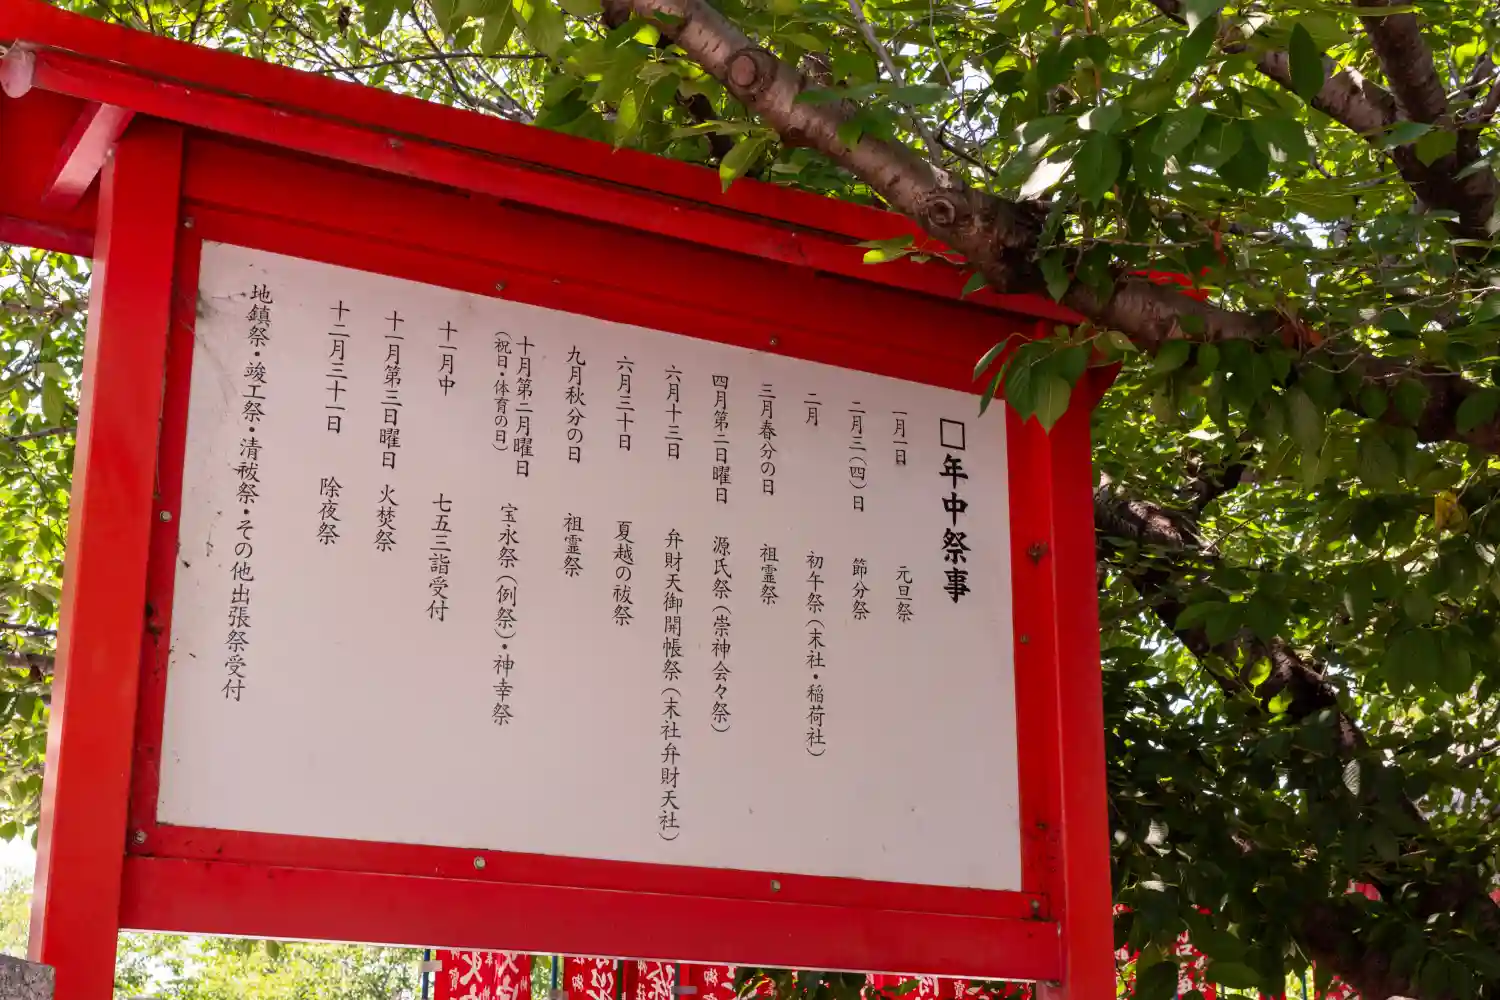 □年中祭事
一月一日 元旦祭
二月三（四）日 節分祭
二月 初午祭（末社・稲荷社）
三月春分の日 祖霊祭
四月第二日曜日 源氏祭（崇神会々祭）
六月十三日 弁財天御開帳祭（末社弁財天社）
六月三十日 夏越の祓祭
九月秋分の日 祖霊祭
十月第二月曜日 宝永祭（例祭）・神幸祭
（祝日・体育の日）
十一月中 七五三詣受付
十一月第三日曜日 火焚祭
十二月三十一日 除夜祭
地鎮祭・竣工祭・清祓祭・その他出張祭受付